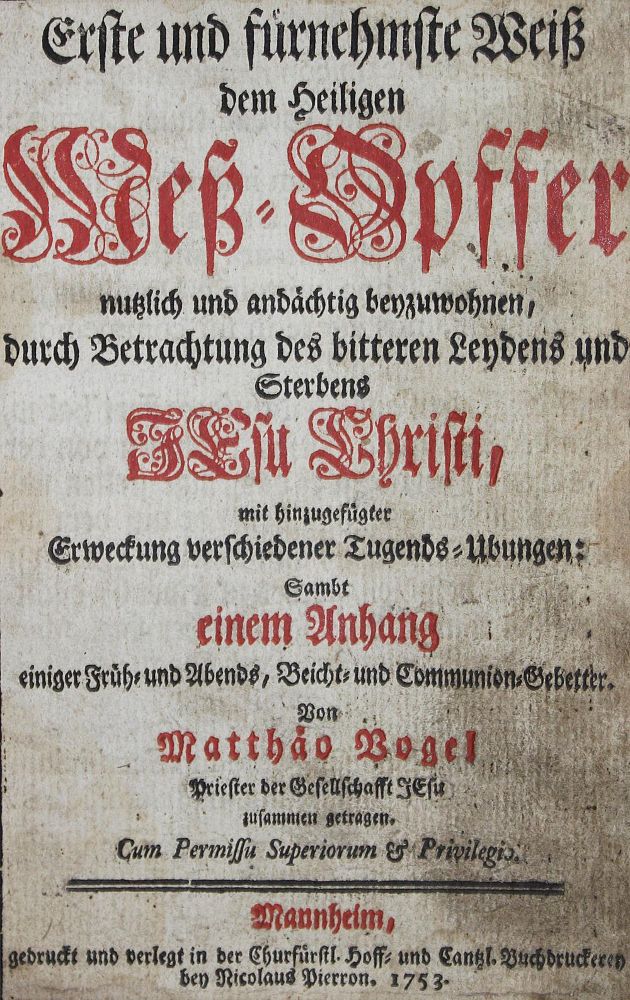 Erste und fürnehmste Weiß
dem Heiligen
Meß-Opffer
nutzlich und andächtig beyzuwohnen,
durch Betrachtung des bitteren Leydens und
Sterbens
JEsu Christi,
mit hinzugefügter
Erweckung verschiedener Tugends-Ubungen:
Sambt
einem Anhang
einiger Früh- und Abends, Beicht- und Communion-Gebetter.
Von
Matthäo Vogel
Priester der Gesellschafft JEsu
zusammen getragen.
Cum Permissu Superiorum & Privilegio.
Mannheim,
gedruckt und verlegt in der Churfürstl. Hoff- und Cantzl. Buchdruckerey
bey Nicolaus Pierron. 1753.